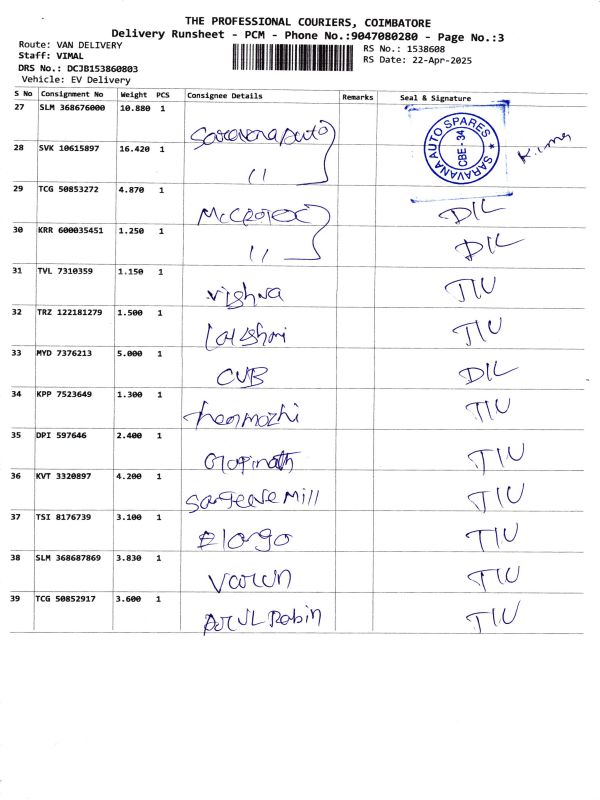 THE PROFESSIONAL COURIERS, COIMBATORE
Delivery Runsheet - PCM - Phone No.:9047080280 - Page No.:3
Route: VAN DELIVERY
Staff: VIMAL
DRS No.: DCJB153860803
Vehicle: EV Delivery
RS No.: 1538608
RS Date: 22-Apr-2025
S No Consignment No Weight PCS Consignee Details Remarks Seal & Signature
27 SLM 368676000 10.880 1 Saravana auto
SARAVANA AUTO SPARES ★ CBE - 34 ★
28 SVK 10615897 16.420 1 11
29 TCG 50853272 4.870 1 DIL
30 KRR 600035451 1.250 1 11 DIL
31 TVL 7310359 1.150 1 vishva TIU
32 TRZ 122181279 1.500 1 TIU
33 MYD 7376213 5.000 1 CUB DIL
34 KPP 7523649 1.300 1 thenmozhi TIU
35 DPI 597646 2.400 1 Gopinath TIU
36 KVT 3320897 4.200 1 mill TIU
37 TSI 8176739 3.100 1 Elango TIU
38 SLM 368687869 3.830 1 Varun TIU
39 TCG 50852917 3.600 1 Arul Robin TIU